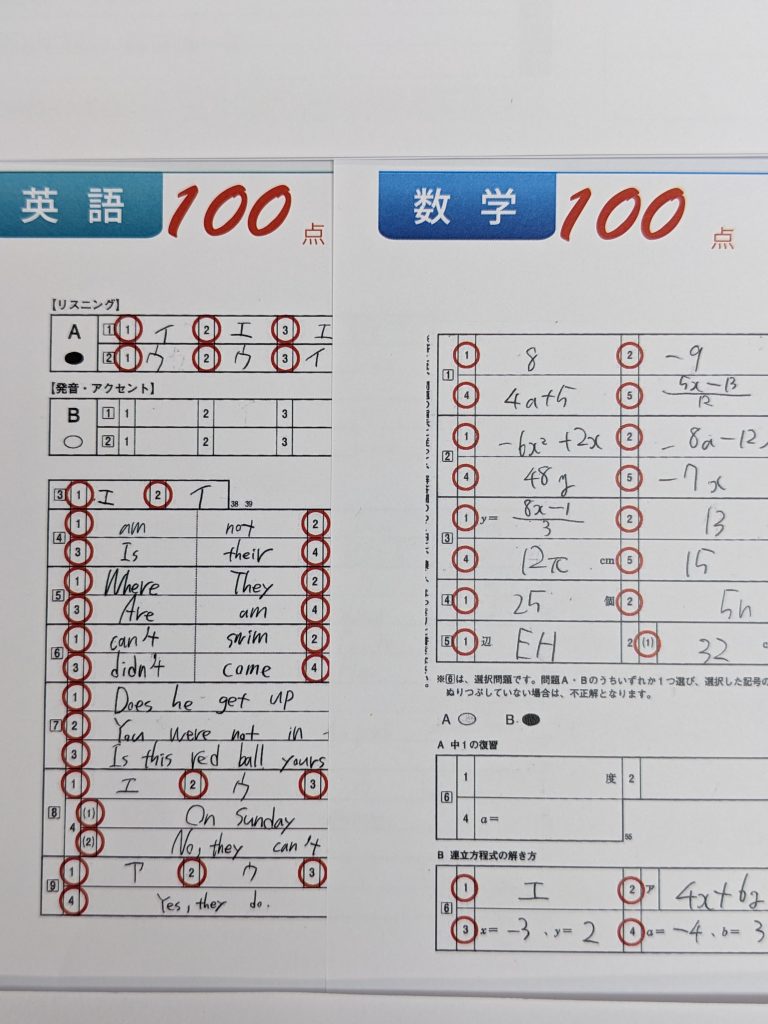 英語 100点
【リスニング】
A 1 1 イ 2 エ 3 エ
2 1 ウ 2 ウ 3 イ
【発音・アクセント】
B 1 1 2 3
2 1 2 3
3 1 エ 2 イ 38 39
4 1 am not 2
3 Is their 4
5 1 Where They 2
3 Are am 4
6 1 can't swim 2
3 didn't come 4
7 1 Does he get up
2 You were not in
3 Is this red ball yours
8 1 エ 2 ウ 3
4 (1) On Sunday
(2) No, they can't
9 1 ア 2 ウ 3
4 Yes, they do.
数学 100点
1 1 8 2 -9
4 4a+5 5 5x-13/12
2 1 -6x²+2x 2 -8a-12
4 48y 5 -7x
3 1 y= 8x-1/3 2 13
4 12π cm 5 15
4 1 25 個 2 5n
5 1 辺 EH 2 (1) 32
※6は、選択問題です。問題A・Bのうちいずれか1つ選び、選択した記号の
ぬりつぶしていない場合は、不正解となります。
A B
A 中1の復習
6 1 度 2
4 a= 55
B 連立方程式の解き方
6 1 エ 2 ア 4x+6y
3 x= -3 、y= 2 4 a= -4 、b= 3